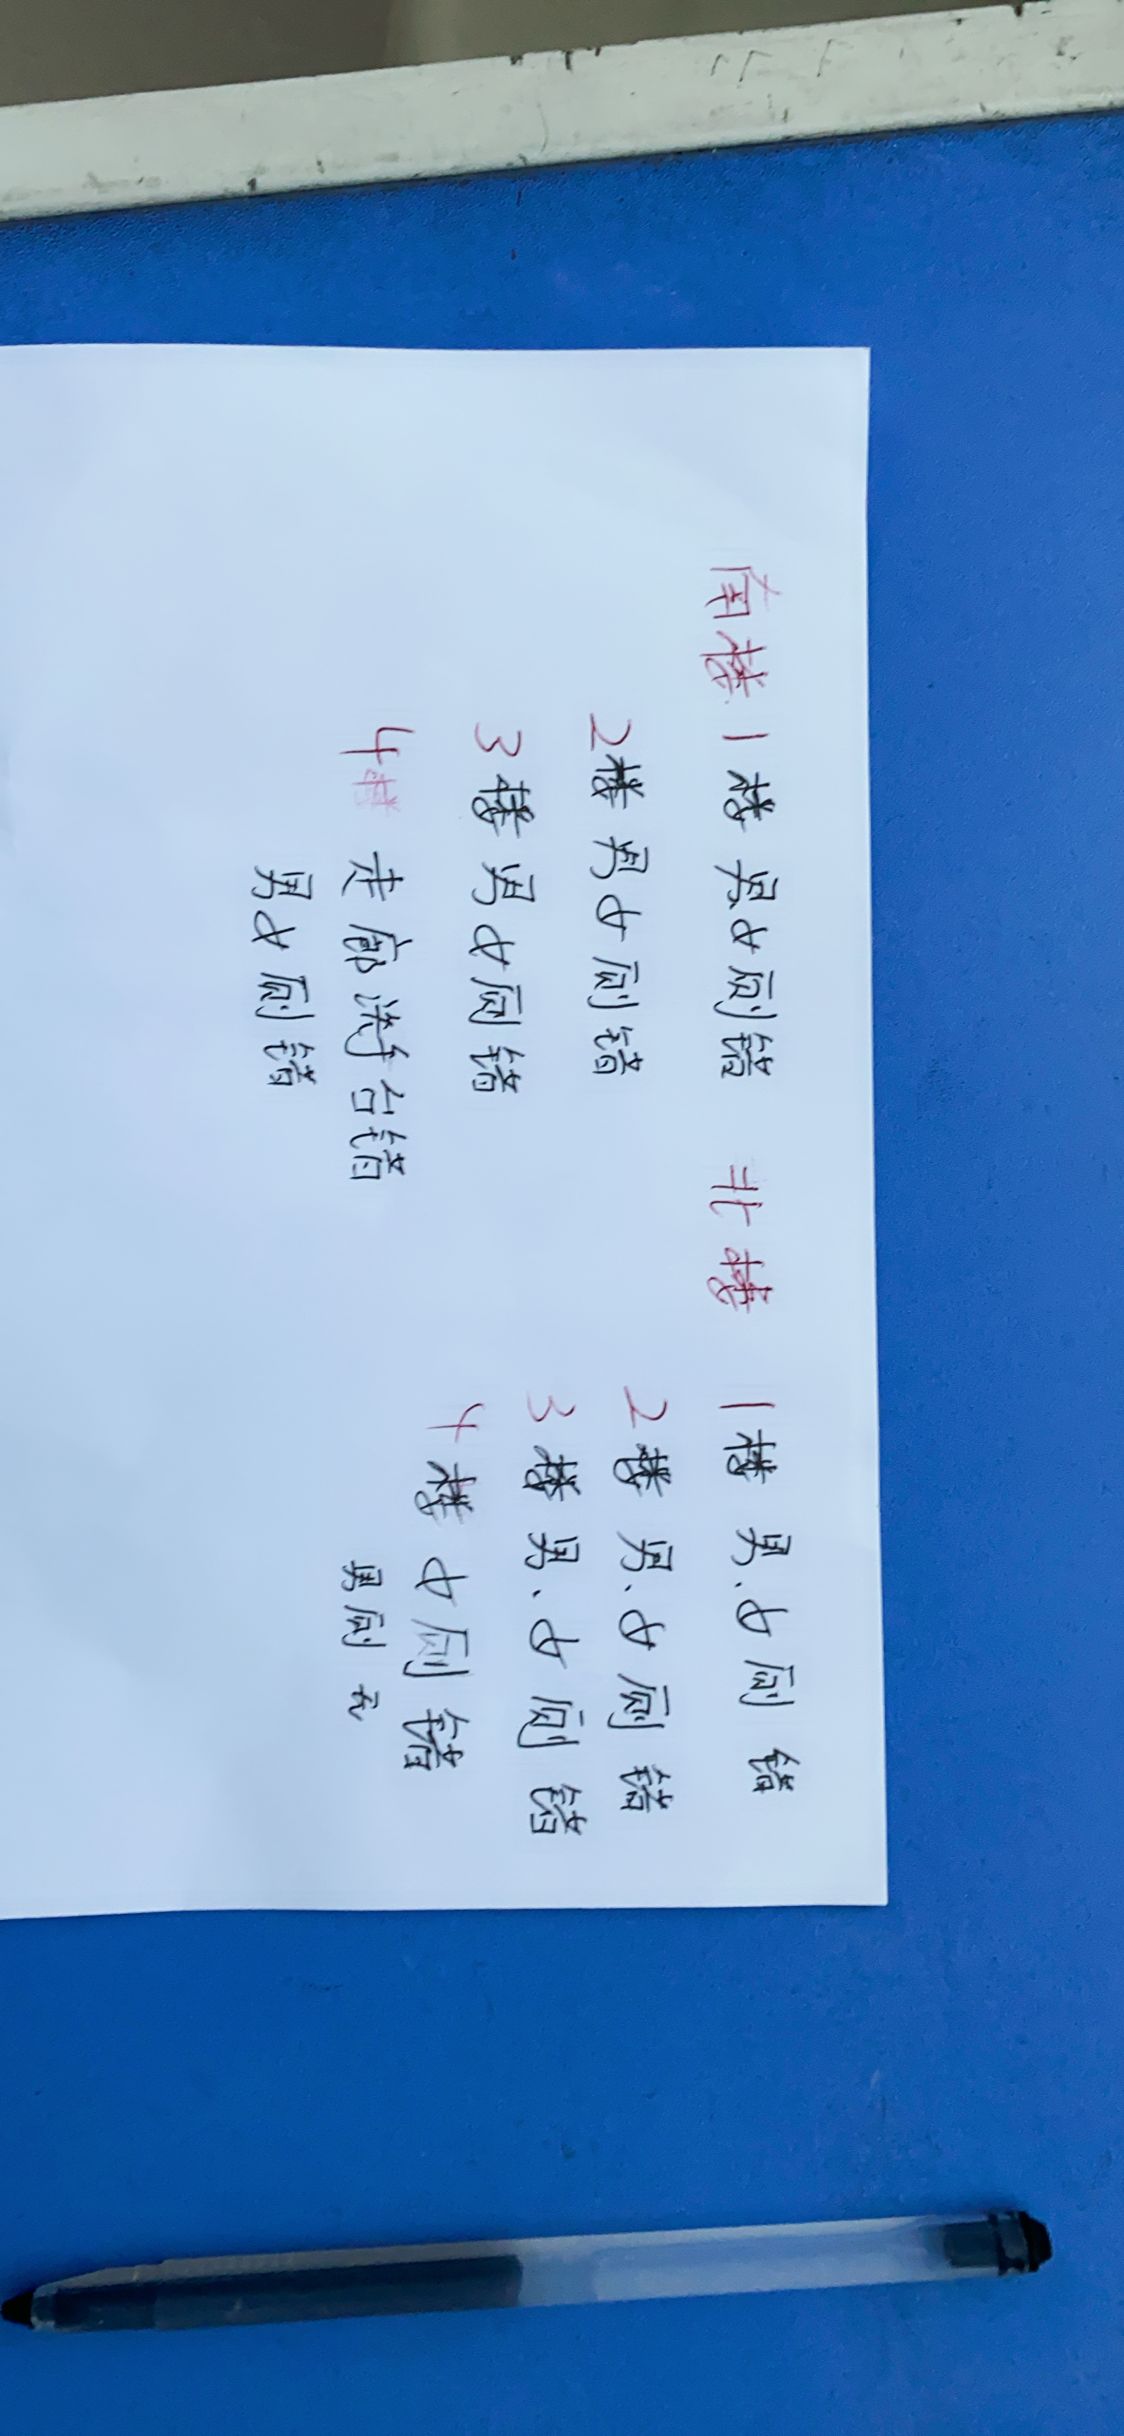 南楼 1楼 男女厕错
2楼 男女厕错
3楼 男女厕错
4楼 走廊洗手台错
男女厕错
北楼 1楼 男、女厕错
2楼 男、女厕错
3楼 男、女厕错
4楼 女厕错
男厕